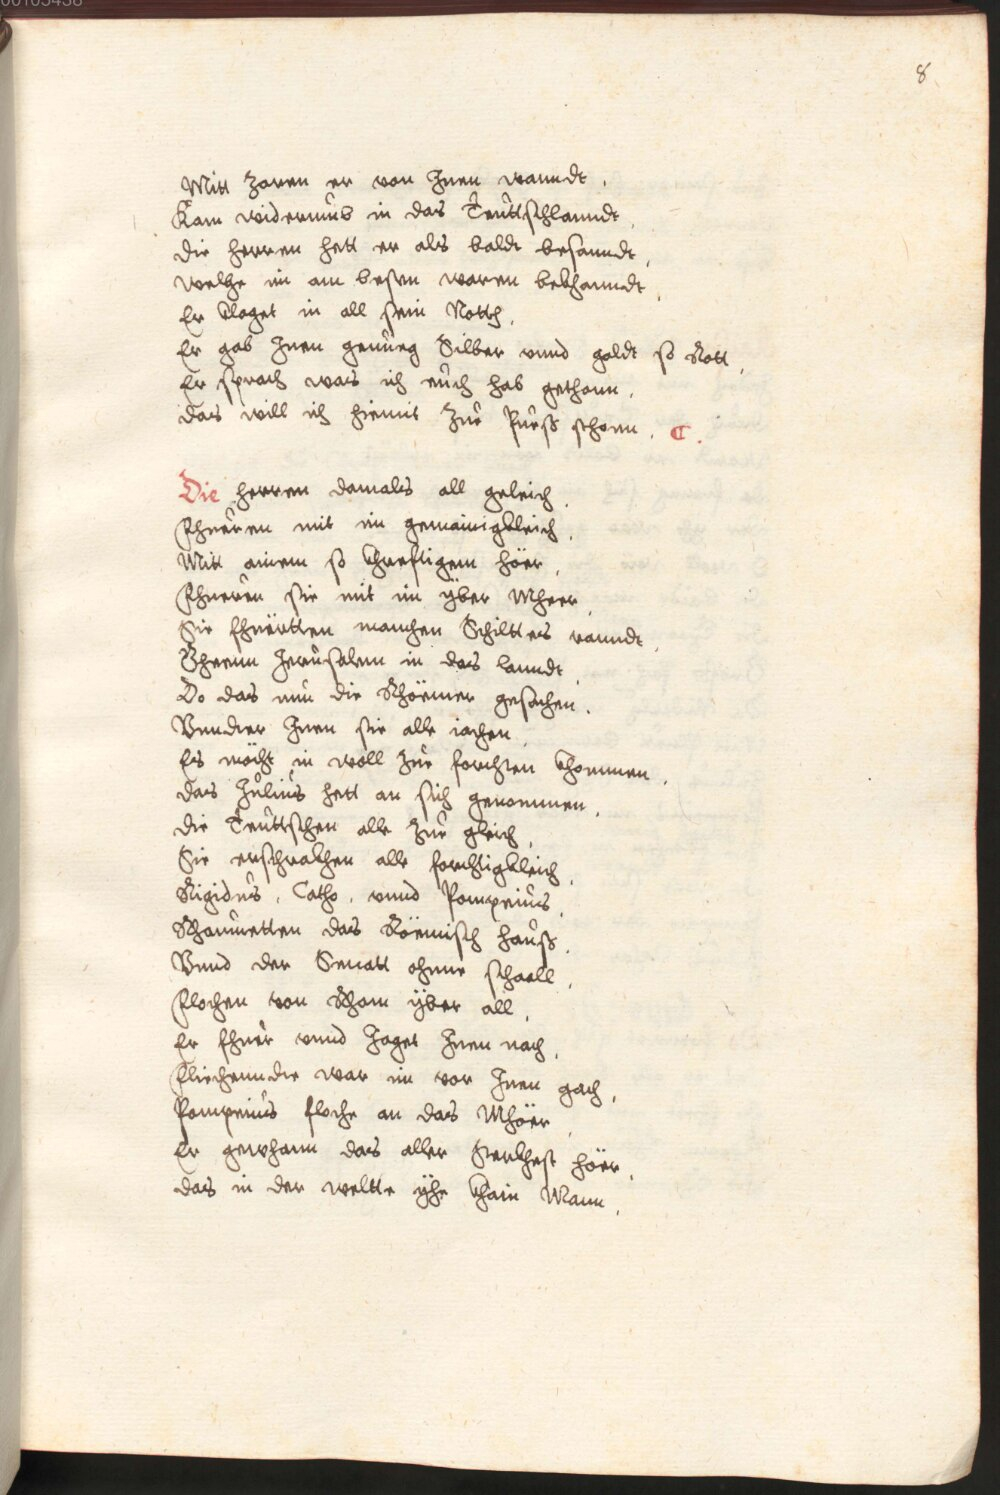 00105438
8
Mitt zoren er von Inen wanndt.
Kam widerumb in das Teuttschlanndt,
die herren hett er als baldt besanndt,
welche im am besten waren bekhanndt,
Er klaget in all sein Notth,
Er gab Inen genueg Silber vnnd goldt so Rott,
Er sprach was ich euch hab gethonn,
das will ich hiemit zur Puess schonn. C.
Die herren damals all geleich,
Fhueren mit im gemainigkleich,
Mitt ainem so khrefftigem höer,
Fhueren sie mit im yber Mheer,
Sie fhuertten manchen Schilttes ranndt,
Gheenn Jerusalem in das lanndt,
Do das nun die Rhoemer gesachen.
Vnnder Inen sie alle iachen,
Es möcht in woll zur forchten khommen,
das Julius hett an sich genommen,
die Teuttschen alle zur gleich,
Sie erschrakhen alle forchtigkleich,
Rigidus, Catho, vnnd Pompeius,
Rhaumetten das Röemisch hauss,
Vnnd der Senatt ohnne schaell,
Flochen von Rhom yber all,
Er fhuer vnnd Jaget Inen nach,
Fliechennde war im vor Inen gach,
Pompeius floche an das Mhöer,
Er gewhann das aller sterkhest höer,
das in der weltte yhe khain Mann,